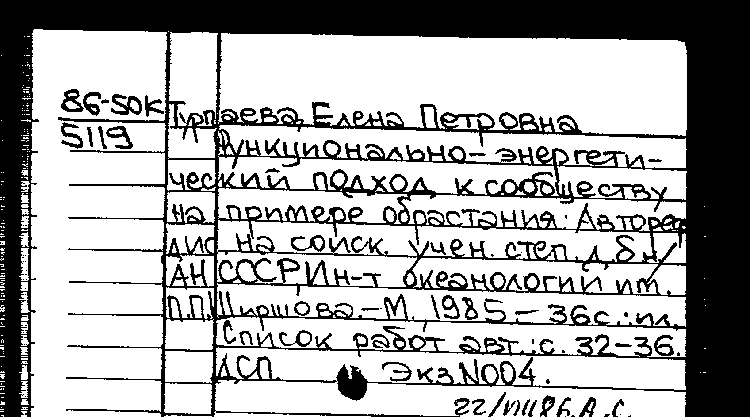 86-50К Турпаева, Елена Петровна
5119 Функционально-энергети-
ческий подход к сообществу
на примере обрастания: Автореф
дис на соиск. учен. степ. д.б.н/
АН СССР, Ин-т океанологии им.
П.П. Ширшова.-М., 1985.-36с.:ил.
Список работ авт.:с. 32-36.
ДСП. Экз.N004.
22/VII86.А.С.